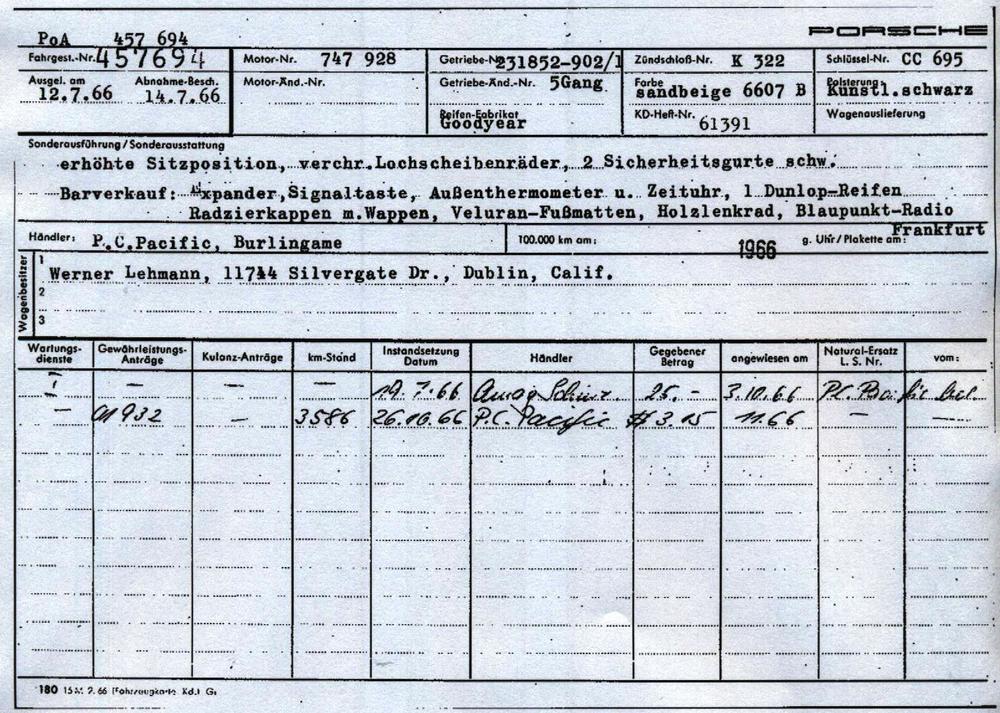 PORSCHE
PoA 457 694
Fahrgest.-Nr. 457694 Motor-Nr. 747 928 Getriebe-Nr. 231852-902/1 Zündschloß-Nr. K 322 Schlüssel-Nr. CC 695
Ausgel. am 12.7.66 Abnahme-Besch. 14.7.66 Motor-Änd.-Nr. Getriebe-Änd.-Nr. 5Gang Farbe sandbeige 6607 B Polsterung Kunstl.schwarz
Reifen-Fabrikat Goodyear KD-Heft-Nr. 61391 Wagenauslieferung
Sonderausführung/Sonderausstattung
erhöhte Sitzposition, verchr.Lochscheibenräder, 2 Sicherheitsgurte schw.
Barverkauf: xpander,Signaltaste, Außenthermometer u. Zeituhr, 1 Dunlop-Reifen
Radzierkappen m.Wappen, Veluran-Fußmatten, Holzlenkrad, Blaupunkt-Radio
Frankfurt
Händler: P.C.Pacific, Burlingame 100.000 km am: 1966 g. Uhr/Plakette am:
Wagenbesitzer
1 Werner Lehmann, 11744 Silvergate Dr., Dublin, Calif.
2
3
Wartungs-dienste Gewährleistungs-Anträge Kulanz-Anträge km-Stand Instandsetzung Datum Händler Gegebener Betrag angewiesen am Natural-Ersatz L. S. Nr. vom:
— — — — 19.7.66 Amag 25.- 3.10.66
— 01932 — 3586 26.10.66 P.C. Pacific $ 3.15 11.66 — —
180 15 M. 2. 66 (Fahrzeugkarte Kd.) Gs